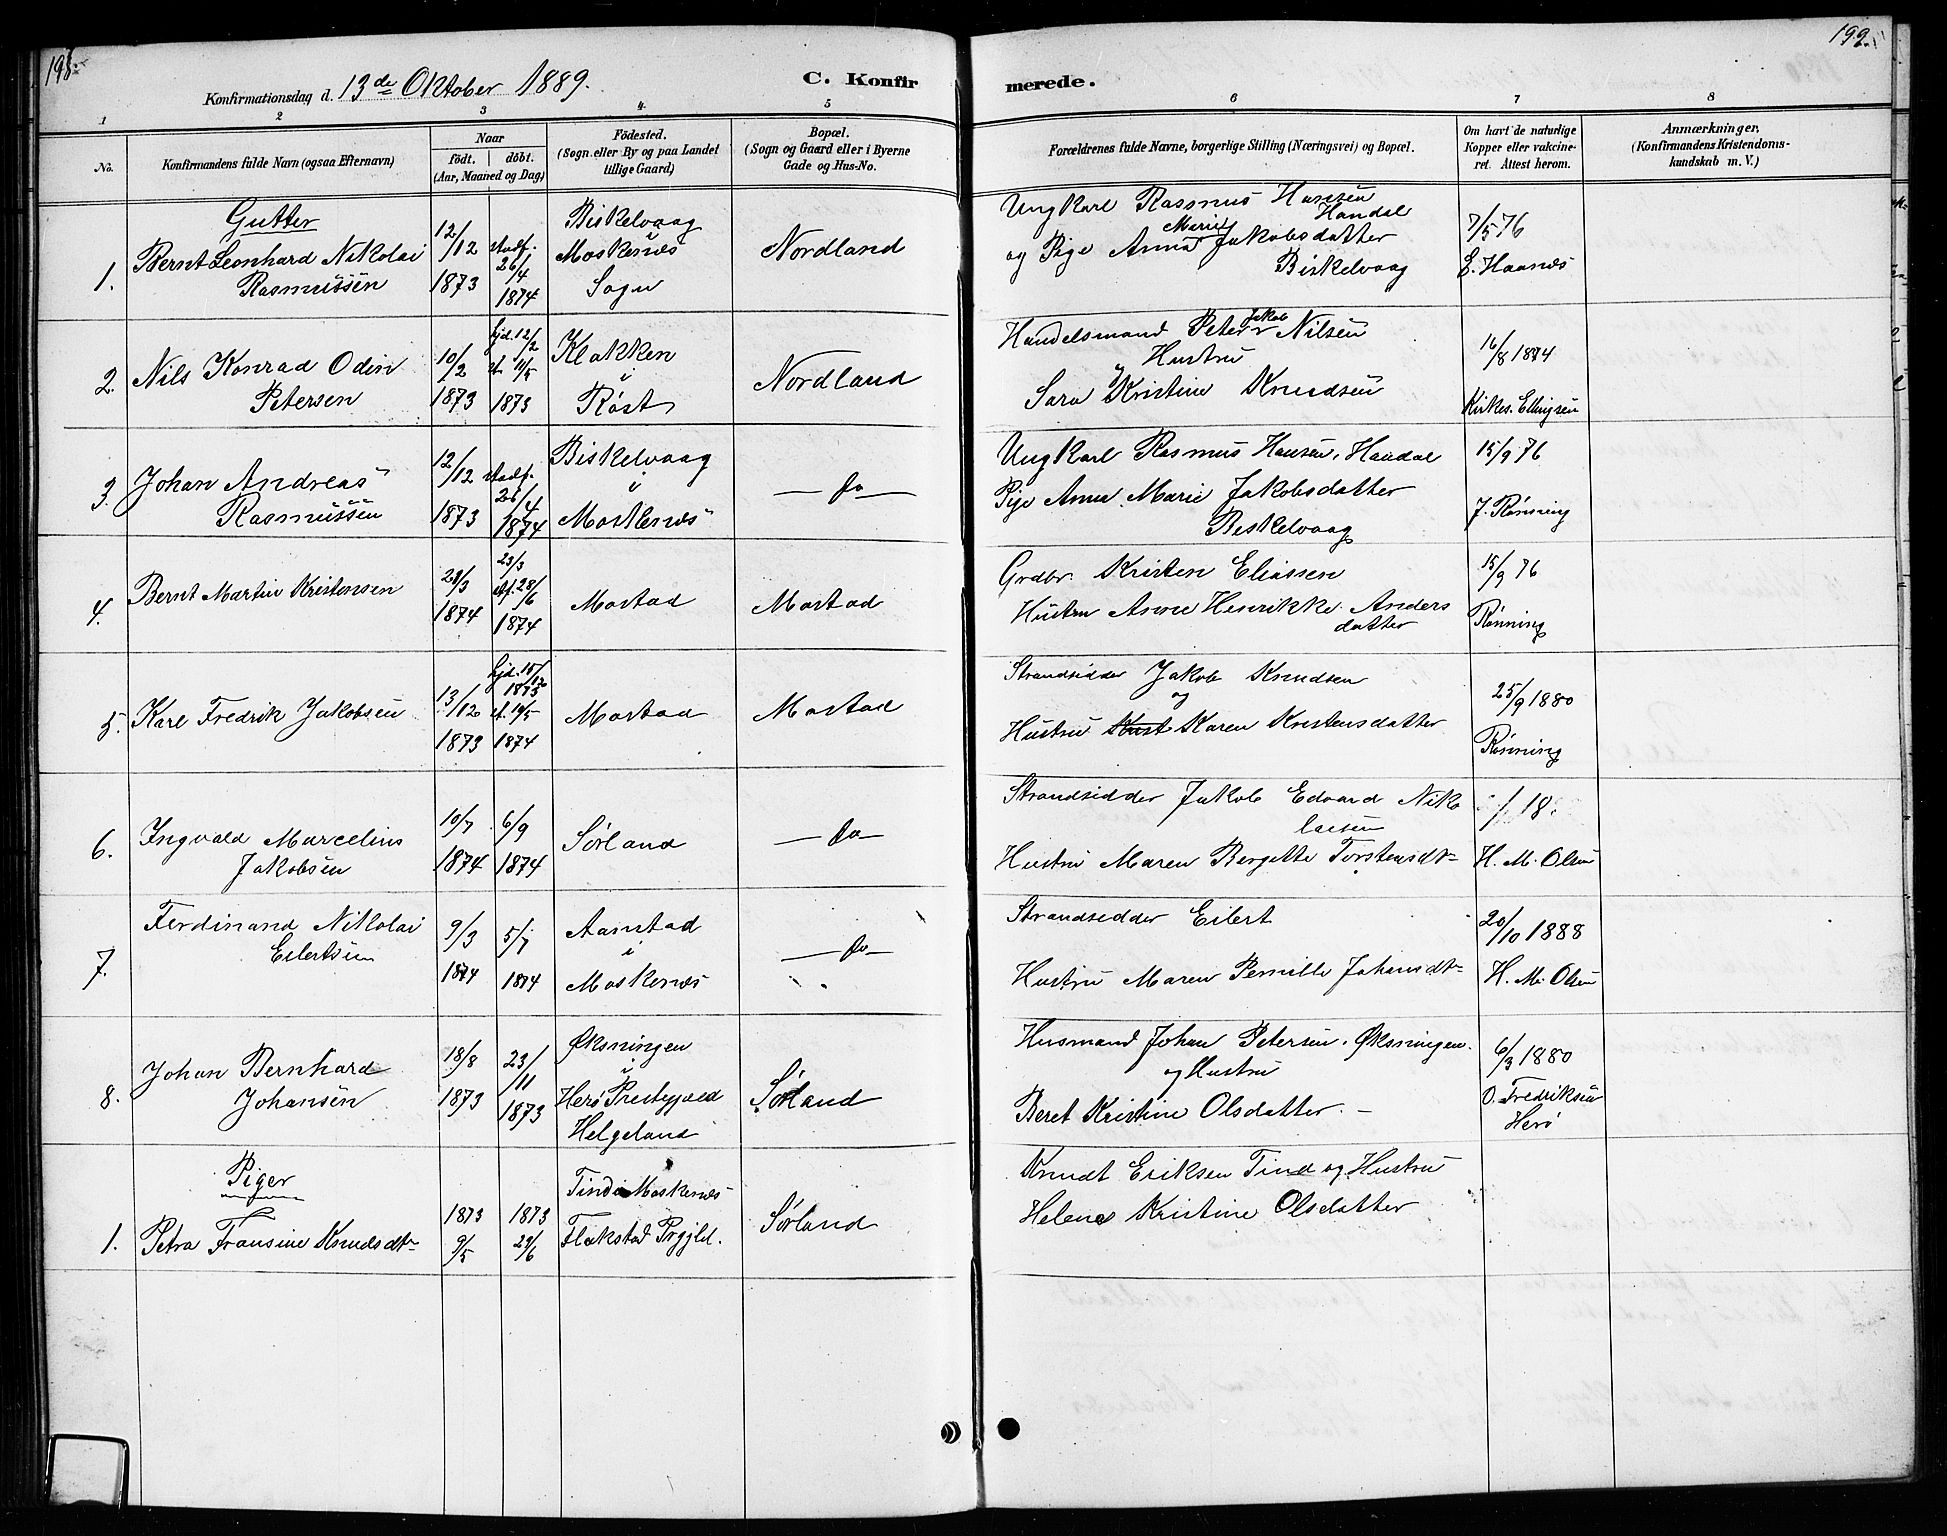 198.
199.
Konfirmationsdag d. 13de Oktober 1889.
C. Konfir
merede.
1 2 3 4 5 6 7 8
No.
Konfirmandens fulde Navn (ogsaa Efternavn)
Naar
født. døbt.
(Aar, Maaned og Dag)
Fødested.
(Sogn eller By og paa Landet
tillige Gaard)
Bopæl.
(Sogn og Gaard eller i Byerne
Gade og Hus-No.
Forældrenes fulde Navne, borgerlige Stilling (Næringsvei) og Bopæl.
Om havt de naturlige
Kopper eller vakcine-
ret. Attest herom.
Anmærkninger,
(Konfirmandens Kristendoms-
kundskab m. V.)
Gutter
1. Bernt Leonhard Nikolai
Rasmussen
12/12
1873
stadf.
26/4
1874
Biskelvaag
Moskenes
Sogn
Nordland
Ungkarl Rasmus Hansen
Handal
og Pige Anna Marie Jakobsdatter
Biskelvaag
7/5 76
E. Haanes
2. Nils Konrad Odin
Petersen
10/2
1873
hjd. 12/2
st. 11/5
1873
Klakken
i
Røst
Nordland
Handelsmand Peter Jakob Nilsen
Hustru
Sara Kristine Knudsen
16/8 1874
Kirkes. Ellingsen
3. Johan Andreas
Rasmussen
12/12
1873
stadf.
26/4
1874
Biskelvaag
i
Moskenes
— do —
Ungkarl Rasmus Hansen, Handal
Pige Anna Marie Jakobsdatter
Biskelvaag
15/9 76
J. Rønning
4. Bernt Martin Kristensen
21/3
1874
23/3
stf. 28/6
1874
Mostad
Mostad
Grdbr. Kristen Eliassen
Hustru Anne Henrikke Anders
datter
15/9 76
Rønning
5. Karl Fredrik Jakobsen
13/12
1873
hjd. 15/12
1873
st. 14/5
1874
Mostad
Mostad
Strandsidder Jakob Knudsen
og
Hustru Karen Kristensdatter
25/9 1880
Rønning
6. Ingvald Marcelius
Jakobsen
10/7
1874
6/9
1874
Sørland
— do —
Strandsidder Jakob Edvard Niko
laisen
Hustru Maren Bergitte Torstensdtr
/ 18
H. M. Olsen
7. Ferdinand Nikolai
Eilertsen
9/3
1874
5/7
1874
Aamstad
i
Moskenes
— do —
Strandsidder Eilert
Hustru Maren Pernille Johansdtr
20/10 1888
H. M. Olsen
8. Johan Bernhard
Johansen
18/8
1873
23/11
1873
Øksningen
i
Herø Prestegjeld
Helgeland
Sørland
Husmand Johan Petersen, Øksningen.
og Hustru
Beret Kristine Olsdatter. —
6/3 1880
O. Fredriksen
Herø
Piger
1. Petra Fransine Knudsdtr
1873
9/5
1873
29/6
Tind i Moskenes
Flakstad Prgjld.
Sørland
Knudt Eriksen Tind og Hustru
Helene Kristine Olsdatter